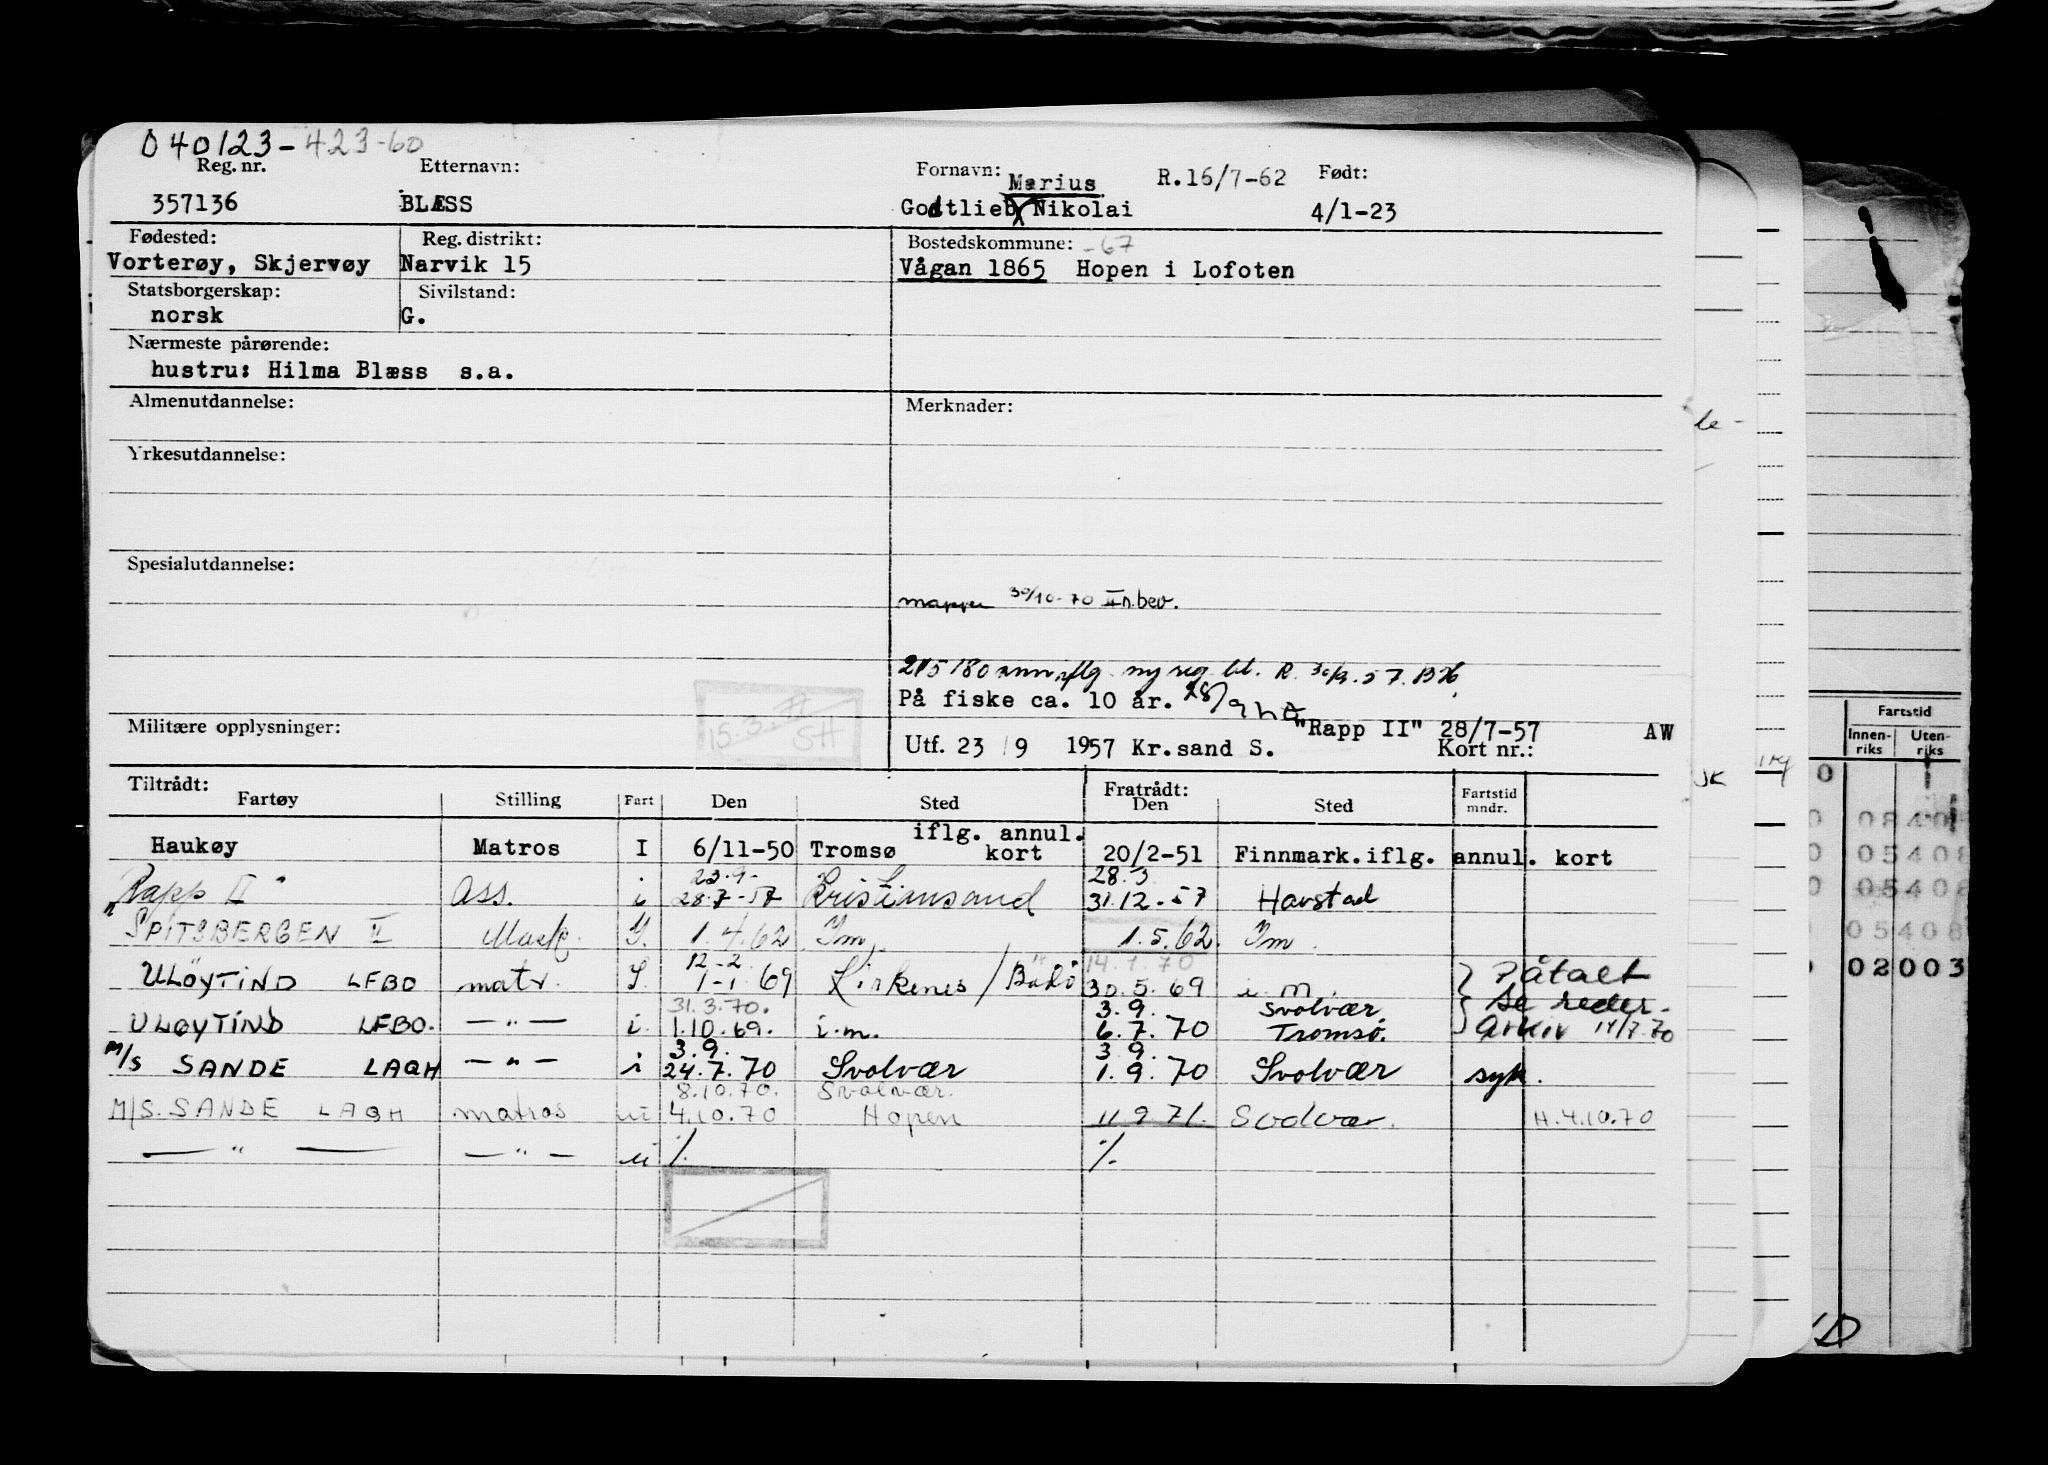 040123-423-60
Reg. nr. Etternavn: Fornavn: Marius R.16/7-62 Født:
357136 BLÆSS Godtlieb Nikolai 4/1-23
Fødested: Reg. distrikt: Bostedskommune: -67
Vorterøy, Skjervøy Narvik 15 Vågan 1865 Hopen i Lofoten
Statsborgerskap: Sivilstand:
norsk G.
Nærmeste pårørende:
hustru: Hilma Blæss s.a.
Almenutdannelse: Merknader:
Yrkesutdannelse:
Spesialutdannelse:
mappe 30/10-70 II n.bev.
215180 ann iflg. ny reg. bl. R.
På fiske ca. 10 år. 28/9
15.3.71 SH
Militære opplysninger: "Rapp II" 28/7-57 AW
Utf. 23/9 1957 Kr.sand S. Kort nr.:
Tiltrådt: Fratrådt:
Fartøy Stilling Fart Den Sted Den Sted Fartstid mndr.
iflg. annul.
Haukøy Matros I 6/11-50 Tromsø kort 20/2-51 Finnmark.iflg. annul. kort
23.9- 28.3
"Rapp II" Ass. i 28.7-57 Kristiansand 31.12-57 Harstad
SPITSBERGEN II Mask. 1.4.62 Im. 1.5.62. Im.
12-2 14.1.70
ULØYTIND LFBO matr. 1-1 69 Kirkenes/Bodø 30.5.69 i.m. Påtalt
31.3.70. 3.9. Svolvær se reder-
ULØYTIND LFBO. -"- i. 1.10.69. i.m. 6.7.70 Tromsø. arkiv 14/7.70
3.9. 3.9.
M/S SANDE LAQH -"- i 24.7.70 Svolvær 1.9.70 Svolvær syk.
8.10.70. Svolvær.
M/S. SANDE LAQH matros ui 4.10.70 Hopen 11.9.71. Svolvær. H.4.10.70
-"- -"- ui %. %.
Fartstid
Innen-riks Uten-riks
0
0840
05408
05408
05408
02003